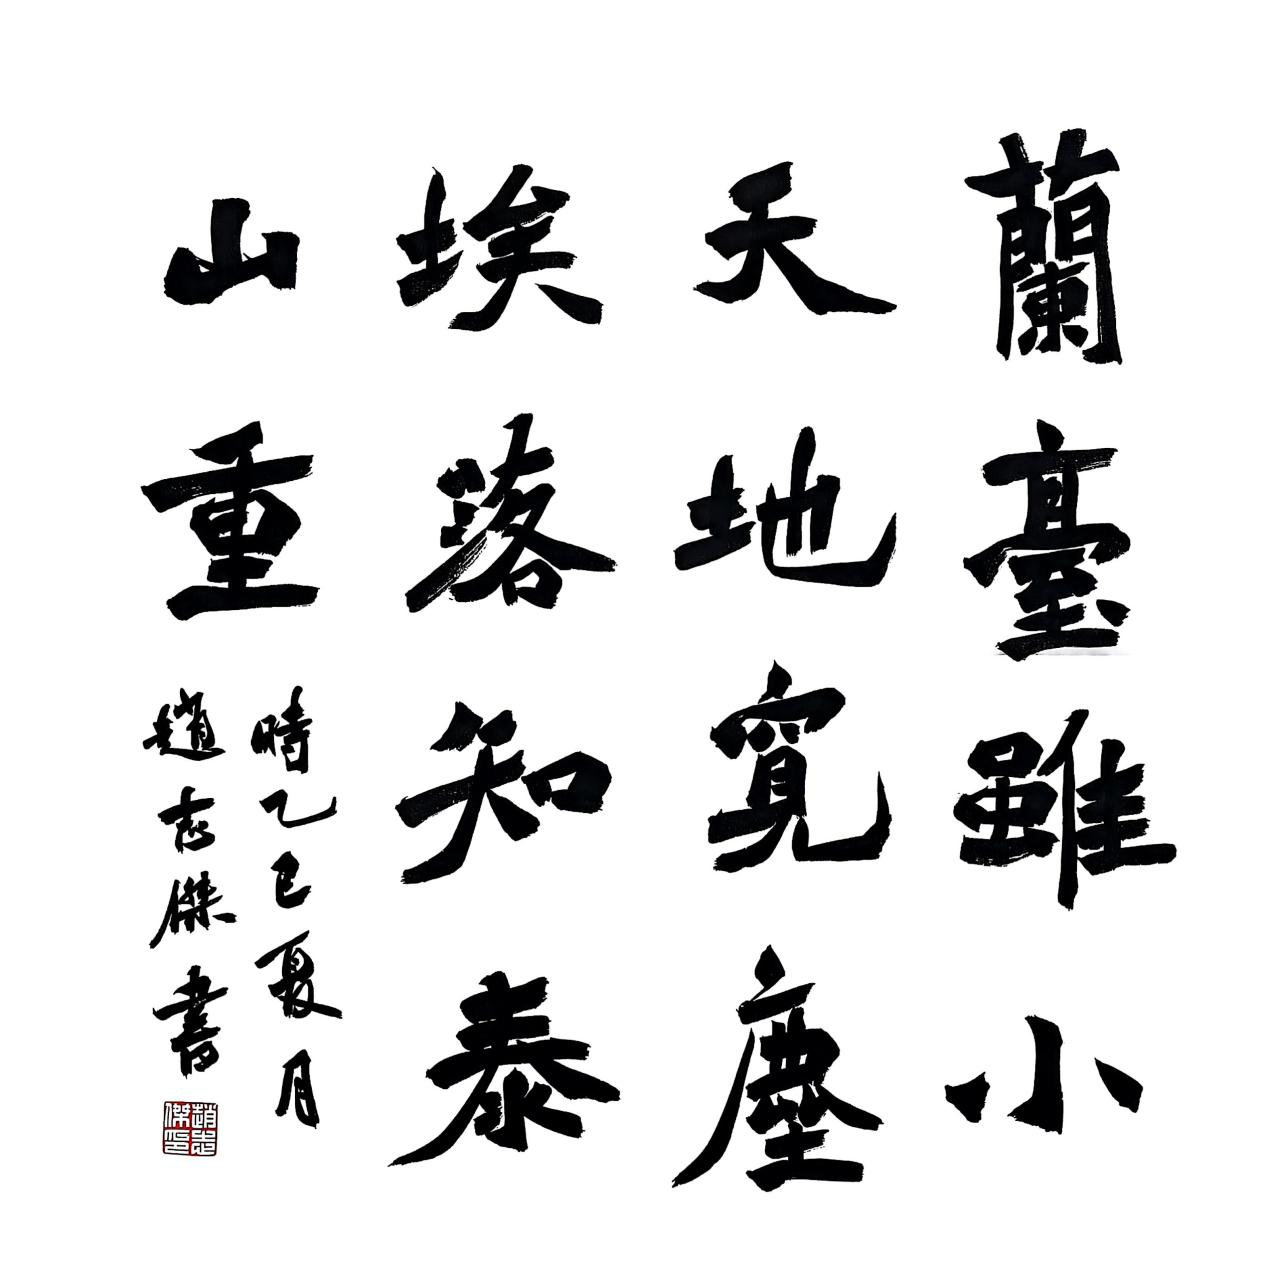 蘭臺雖小
天地寬塵
埃落知泰
山重
時乙巳夏月
趙志傑書
趙志傑印